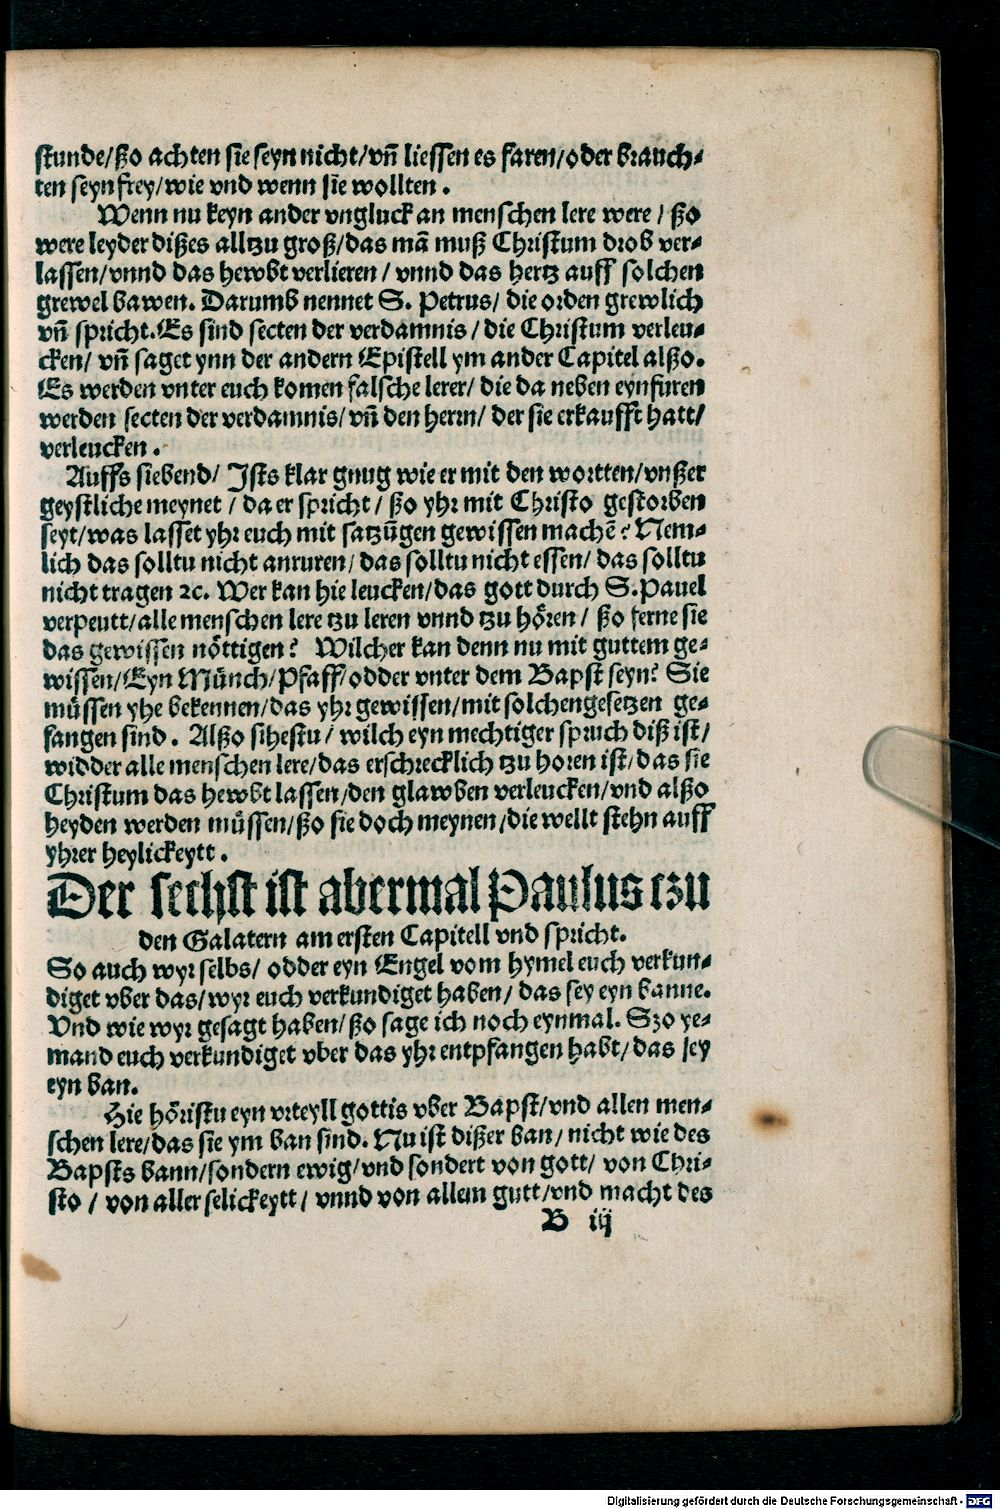 stunde/ßo achten sie seyn nicht/vn̄ liessen es faren/oder brauch⸗
ten seyn frey/wie vnd wenn sie wollten .
Wenn nu keyn ander vngluck an menschen lere were / ßo
were leyder dißes alltzu groß/das mā muß Christum drob ver⸗
lassen/vnnd das hewbt verlieren / vnnd das hertz auff solchen
grewel bawen. Darumb nennet S. Petrus/ die orden grewlich
vn̄ spricht.Es sind secten der verdamnis / die Christum verleu⸗
cken/ vn̄ saget ynn der andern Epistell ym ander Capitel alßo.
Es werden vnter euch komen falsche lerer/ die da neben eynfuren
werden secten der verdamnis/ vn̄ den herrn/ der sie erkaufft hatt/
verleucken .
Auffs siebend/ Ists klar gnug wie er mit den wortten/vnßer
geystliche meynet / da er spricht / ßo yhr mit Christo gestorben
seyt/was lasset yhr euch mit satzūgen gewissen machē? Nem⸗
lich das solltu nicht anruren/ das solltu nicht essen/ das solltu
nicht tragen ꝛc. Wer kan hie leucken/das gott durch S.Pauel
verpeutt/alle menschen lere tzu leren vnnd tzu hören / ßo ferne sie
das gewissen nöttigen? Wilcher kan denn nu mit guttem ge⸗
wissen/Eyn Münch/Pfaff/odder vnter dem Bapst seyn? Sie
müssen yhe bekennen/das yhr gewissen/mit solchengesetzen ge⸗
fangen sind . Alßo sihestu/ wilch eyn mechtiger spruch diß ist/
widder alle menschen lere/das erschrecklich tzu horen ist/das sie
Christum das hewbt lassen/den glawben verleucken/vnd alßo
heyden werden müssen/ßo sie doch meynen/die wellt stehn auff
yhrer heylickeytt .
Der sechst ist abermal Paulus tzu
den Galatern am ersten Capitell vnd spricht.
So auch wyr selbs/ odder eyn Engel vom hymel euch verkun⸗
diget vber das/wyr euch verkundiget haben/ das sey eyn banne.
Vnd wie wyr gesagt haben/ßo sage ich noch eynmal. Szo ye⸗
mand euch verkundiget vber das yhr entpfangen habt/das sey
eyn ban.
Hie höristu eyn vrteyll gottis vber Bapst/vnd allen men⸗
schen lere/das sie ym ban sind. Nu ist dißer ban/ nicht wie des
Bapsts bann/sondern ewig/vnd sondert von gott/ von Chri⸗
sto / von aller selickeytt / vnnd von allem gutt/vnd macht des
B iij
Digitalisierung gefördert durch die Deutsche Forschungsgemeinschaft - DFG